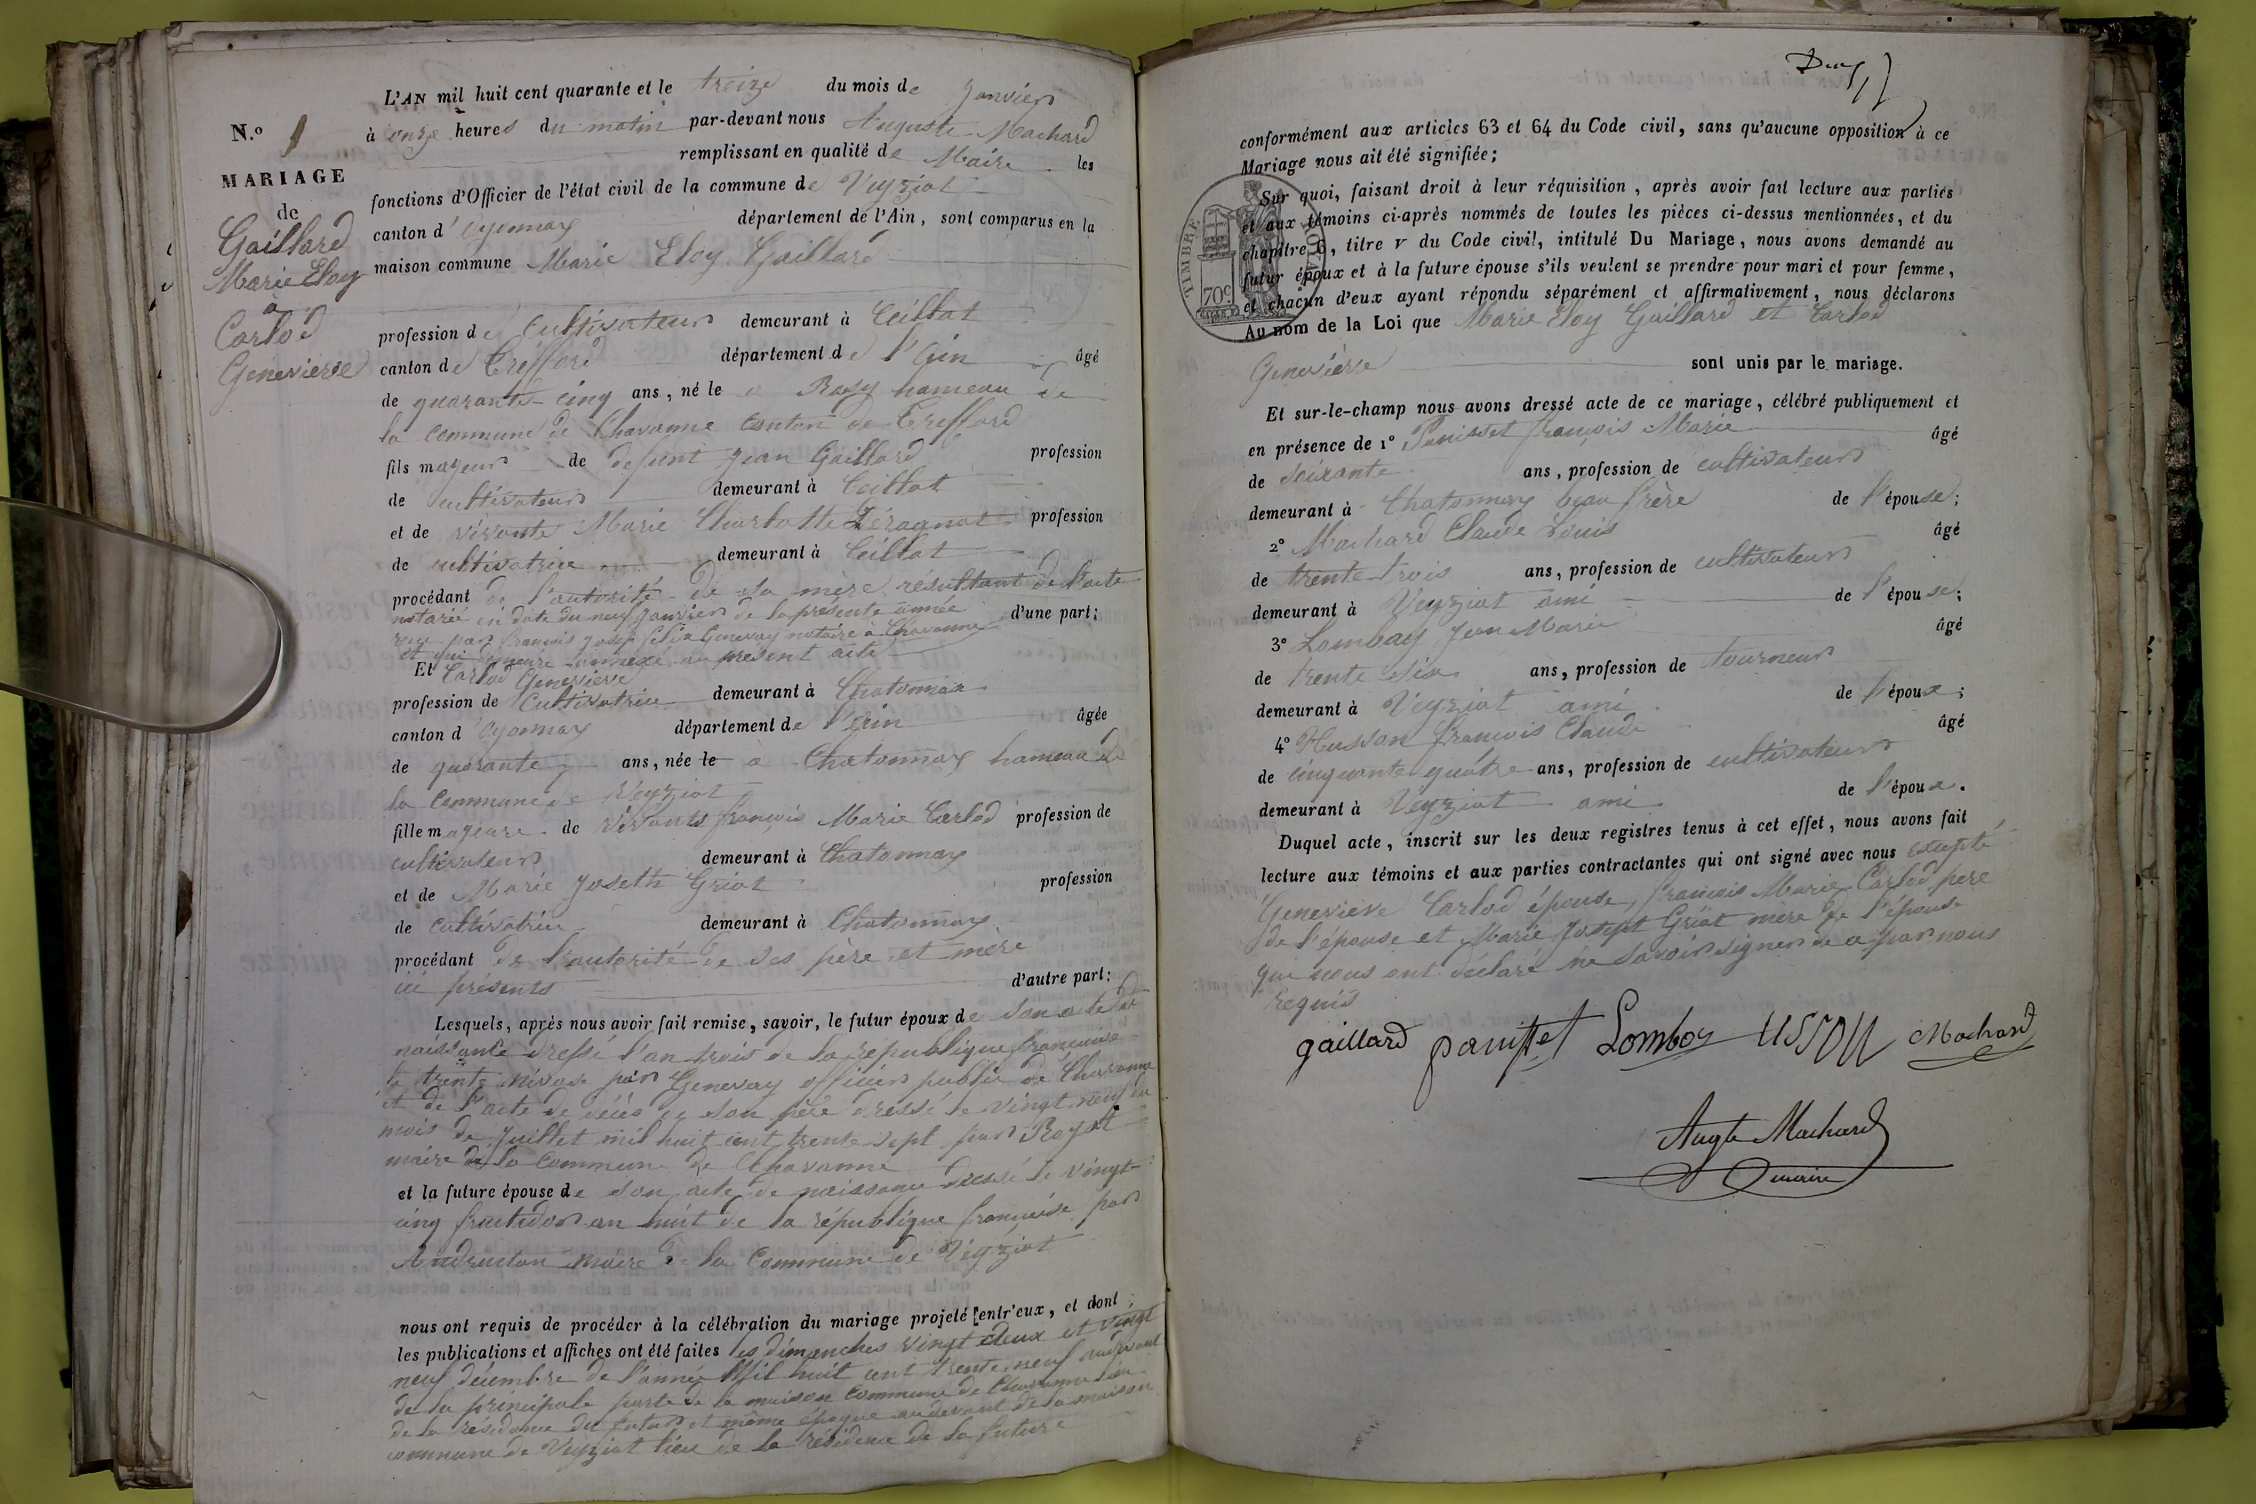 L'AN mil huit cent quarante et le treize du mois de Janvier
N.o 1
à onze heures du matin par-devant nous Auguste Machard
remplissant en qualité de Maire les
MARIAGE
fonctions d'Officier de l'état civil de la commune de Veyziat
de
canton d'Oyonnax département de l'Ain, sont comparus en la
Gaillard
Marie Eloy
maison commune Marie Eloy Gaillard
à
Carlod
Geneviève
profession de Cultivateur demeurant à Ceillat
canton de Treffort département de l'Ain âgé
de quarante-cinq ans, né le à Rosy hameau de
la commune de Chavanne canton de Trefford
fils majeur de defunt Jean Gaillard profession
de cultivateur demeurant à Ceillat
et de vivante Marie Charlotte profession
de cultivatrice demeurant à Ceillat
procédant de l'autorité de sa mère résultant de l'acte
notarié en date du neuf Janvier de la présente année d'une part;
reçu par François Josep Félix Genevay notaire à Chavanne
et qui demeure annexé au présent acte
Et Carlod Geneviève
profession de Cultivatrice demeurant à Chatonnax
canton d'Oyonnax département de l'Ain âgée
de quarante ans, née le à Chatonnax hameau de
la Commune de Veyziat
fille majeure de vivants françois Marie Carlod profession de
cultivateur demeurant à Chatonnax
et de Marie Joseth Griot profession
de cultivatrice demeurant à Chatonnax
procédant de l'autorité de ses père et mère
ici présents d'autre part:
Lesquels, après nous avoir fait remise, savoir, le futur époux de son acte de
naissance dressé l'an trois de la république française
le trente nivose par Genevay officier public de Chavanne
et de l'acte de décès de son père dressé le vingt-neuf du
mois de Juillet mil huit cent trente sept par Royat
maire de la Commune de Chavanne
et la future épouse de son acte de naissance dressé le vingt-
cinq fructidor an huit de la république française par
Andruetan maire de la Commune de Veyziat
nous ont requis de procéder à la célébration du mariage projeté entr'eux, et dont
les publications et affiches ont été faites les dimanches vingt deux et vingt
neuf décembre de l'année Mil huit cent trente-neuf audevant
de la principale porte de la maison commune de Chavanne lieu
de la résidence du futur et même époque audevant de la maison
commune de Veyziat lieu de la résidence de la future
conformément aux articles 63 et 64 du Code civil, sans qu'aucune opposition à ce
Mariage nous ait été signifiée;
Sur quoi, faisant droit à leur réquisition, après avoir fait lecture aux parties
et aux témoins ci-après nommés de toutes les pièces ci-dessus mentionnées, et du
chapitre 6, titre v du Code civil, intitulé Du Mariage, nous avons demandé au
futur époux et à la future épouse s'ils veulent se prendre pour mari et pour femme,
et chacun d'eux ayant répondu séparément et affirmativement, nous déclarons
TIMBRE ROYAL
70c
Au nom de la Loi que Marie Eloy Gaillard et Carlod
Geneviève sont unis par le mariage.
Et sur-le-champ nous avons dressé acte de ce mariage, célébré publiquement et
en présence de 1o Panisset françois Marie âgé
de soixante ans, profession de cultivateur
demeurant à Chatonnax beau frère de l'épouse;
2o Machard Claude Louis âgé
de trente trois ans, profession de cultivateur
demeurant à Veyziat ami de l'épouse;
3o Lombay Jean Marie âgé
de trente six ans, profession de tourneur
demeurant à Veyziat ami de l'époux;
4o Husson françois Claude âgé
de cinquante-quatre ans, profession de cultivateur
demeurant à Veyziat ami de l'époux.
Duquel acte, inscrit sur les deux registres tenus à cet effet, nous avons fait
lecture aux témoins et aux parties contractantes qui ont signé avec nous excepté
Geneviève Carlod épouse, françois Marie Carlod père
de l'épouse et Marie Josept Griot mère de l'épouse
qui nous ont déclaré ne savoir signer de ce par nous
requis
gaillard panisset Lomboy ussou Machard
Augte Machard
maire